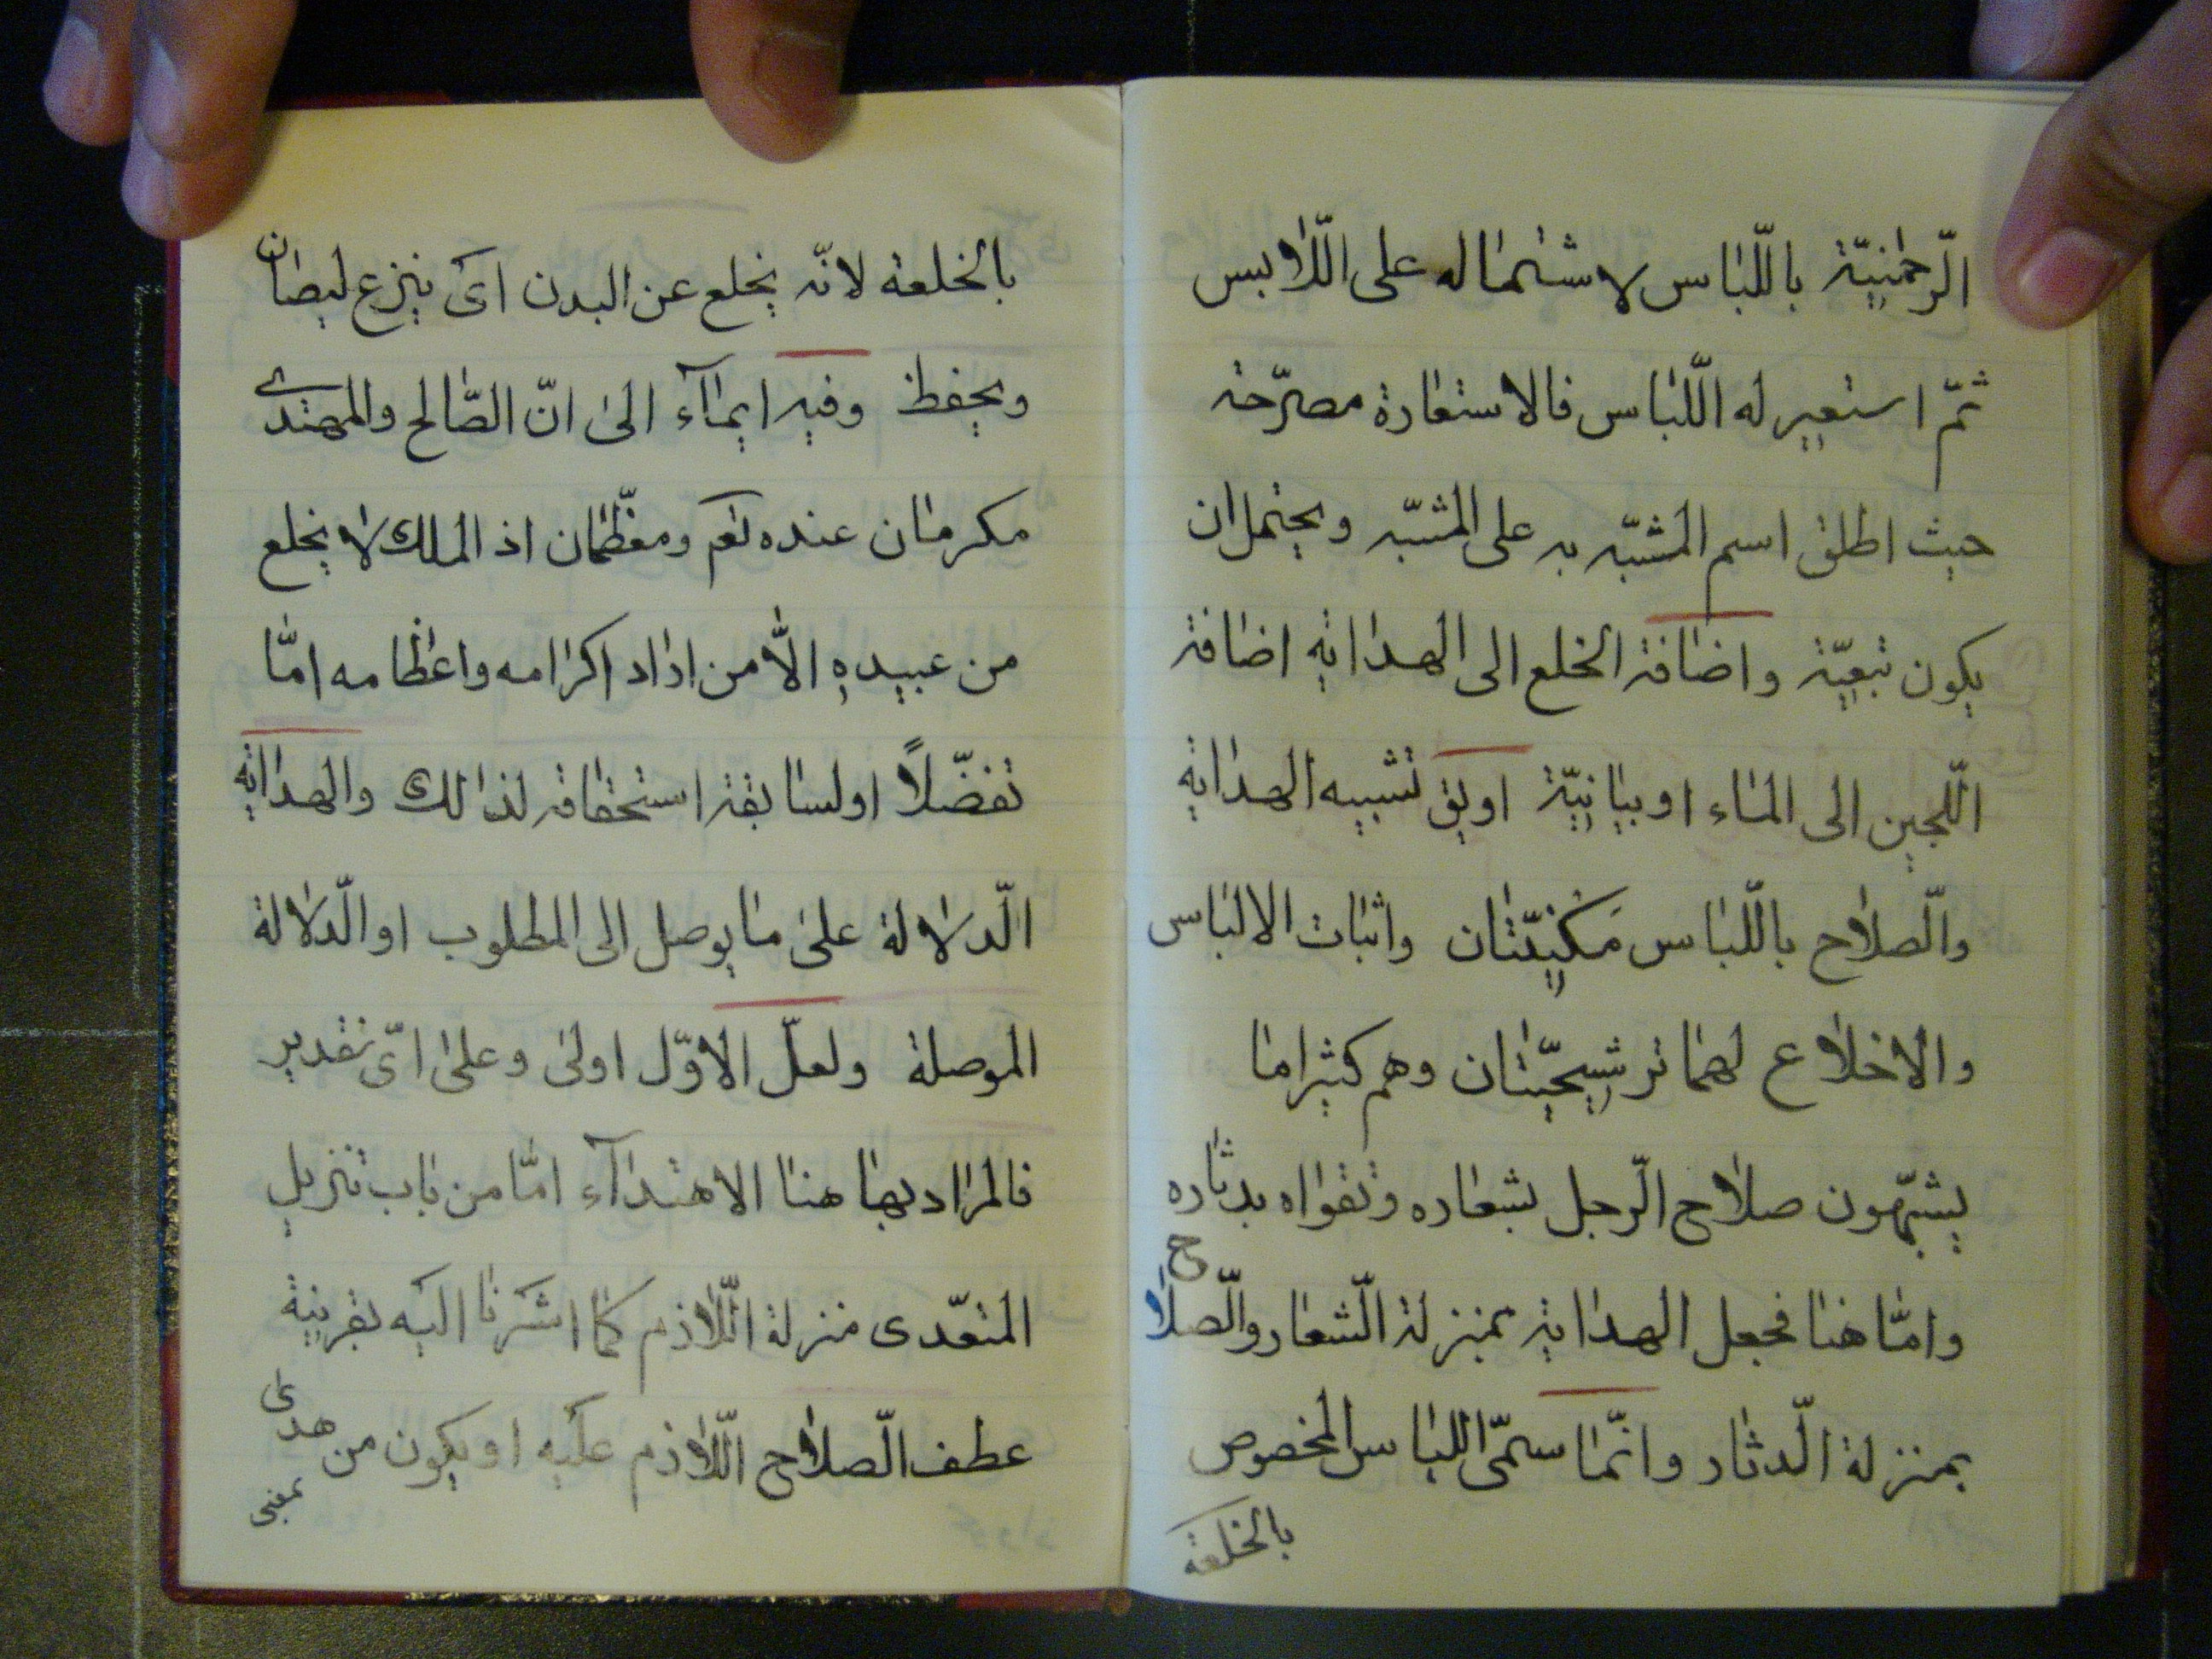 الرّحمٰنيّة باللّباس لاشتماله على اللّابس
ثمّ استعير له اللّباس فالاستعارة مصرّحة
حيث اطلق اسم المشبّه به على المشبّه ويحتمل ان
يكون تبعيّة واضافة الخلع الى الهداية اضافة
اللّجين الى الماء او بيانيّة او يق تشبيه الهداية
والّصلاح باللّباس مَكْنِيّتان واثبات الالباس
والاخلاع لهما ترشيحيّتان وهم كثيراما
يشبّهون صلاح الرّجل بشعاره وتقواه بدثاره
وامّا هنا فجعل الهداية بمنزلة الّشعار والّصلاح
بمنزلة الّدثار وانّما سمّى اللباس المخصوص
بالخلعة
بالخلعة لانّه يخلع عن البدن اى ينزع ليصان
ويحفظ وفيه ايمآء الى انّ الصّالح والمهتدى
مكرمان عنده تعم ومعظّمان اذ الملك لا يخلع
من عبيده الّا من اراد اكرامه واعظامه امّا
تفضّلاً او لسابقة استحقاقه لذالك والهداية
الّدلالة على ما يوصل الى المطلوب او الّدلالة
الموصلة ولعلّ الاوّل اولى وعلى اىّ تقدير
فالمراد بها هنا الاهتدآء امّا من باب تنزيل
المتعّدى منزلة اللّازم كما اشرنا اليه بقرينة
عطف الّصلاح اللّازم عليه او يكون من هدى
بمعنى